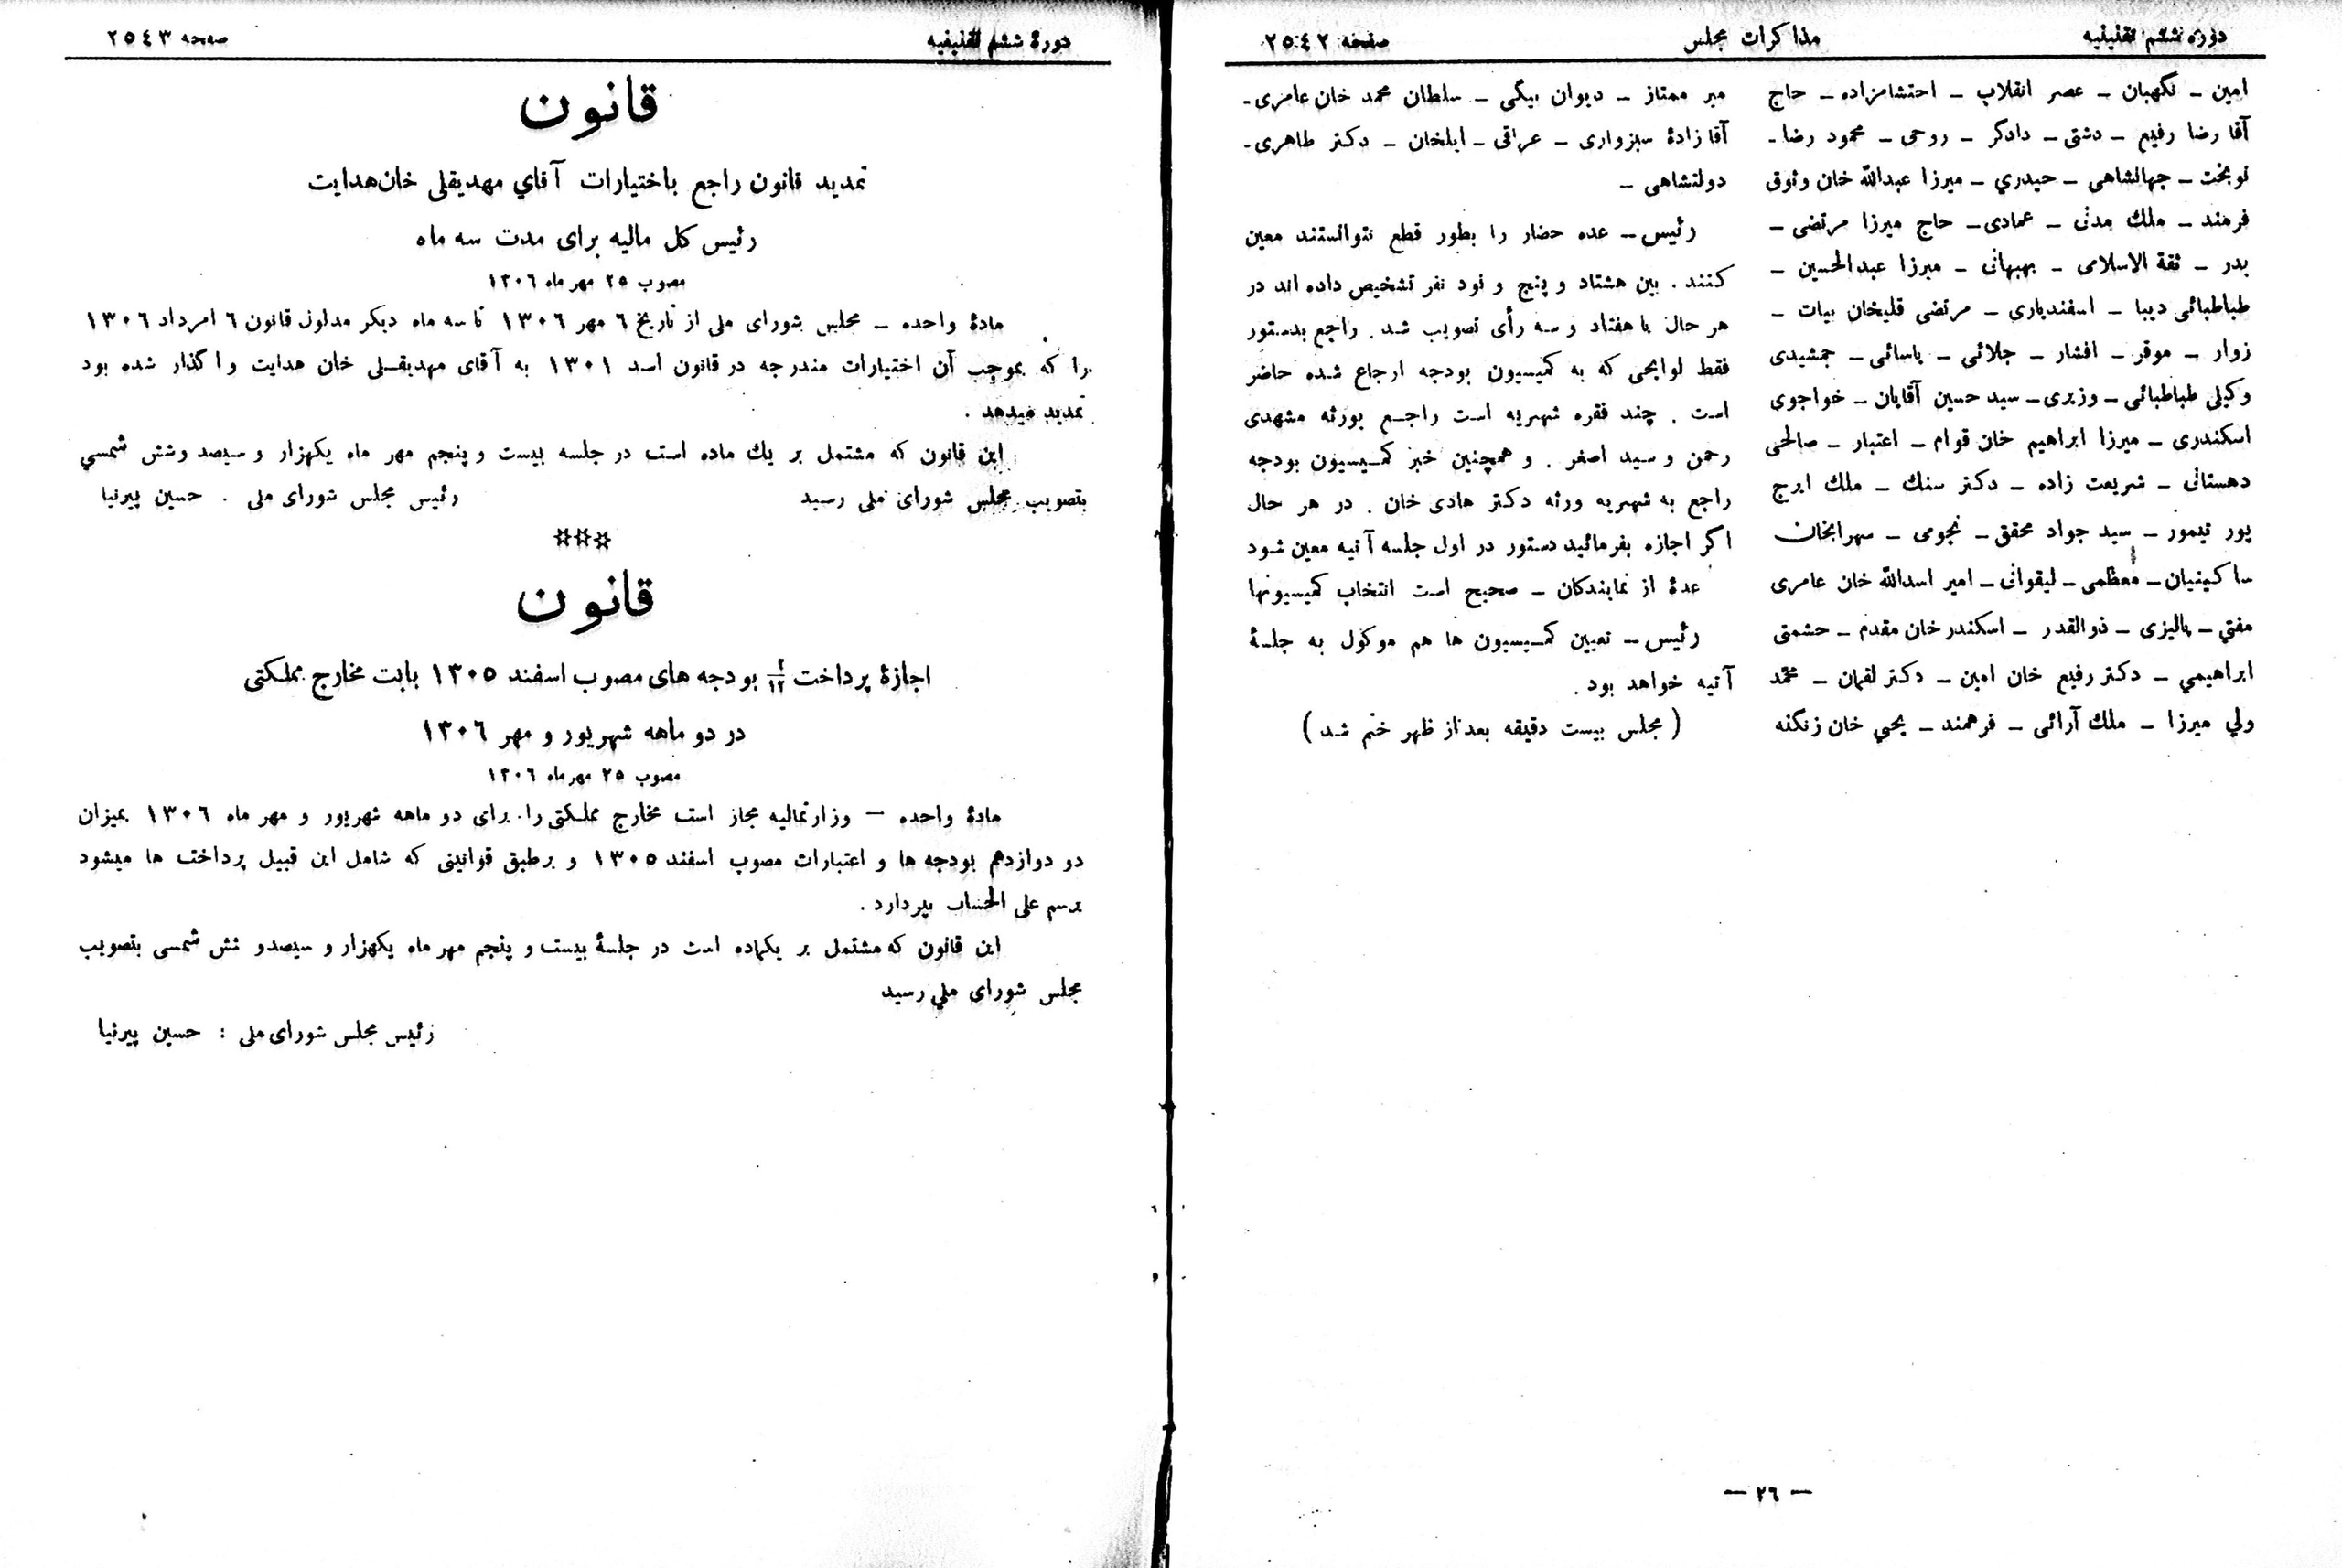 دوره ششم تقنینیه
مذاکرات مجلس
صفحه ۲۵۴۲
امین – نگهبان – عصر انقلاب – احتشامزاده – حاج
آقا رضا رفیع – دشتی – دادگر – روحی – محمود رضا –
نوبخت – جهانشاهی – حیدري – میرزا عبدالله خان وثوق
فرمند – ملك مدنی – عمادی – حاج میرزا مرتضی –
بدر – ثقة الاسلامی – بهبهانی – میرزا عبدالحسین –
طباطبائی دیبا – اسفندیاری – مرتضی قلیخان بیات –
زوار – موقر – افشار – جلائی – یاسائی – جمشیدی
وکیلی طباطبائی – وزیری – سید حسین آقایان – خواجوی
اسکندری – میرزا ابراهیم خان قوام – اعتبار – صالحی
دهستانی – شریعت زاده – دکتر سنك – ملك ایرج
پور تیمور – سید جواد محقق – نجومی – سهرابخان
ساکینیان – معظمی – لیقوانی – امیر اسدالله خان عامری
مفتي – پالیزی – ذوالقدر – اسکندر خان مقدم – حشمتی
ابراهیمي – دکتر رفیع خان امین – دکتر لقمان – محمد
ولي میرزا – ملك آرائی – فرهمند – یحیي خان زنگنه
میر ممتاز – دیوان بیگی – سلطان محمد خان عامری –
آقا زادهٔ سبزواری – عراقی – ایلخان – دکتر طاهری –
دولتشاهی –
رئیس – عده حضار را بطور قطع نتوانستند معین
کنند . بین هشتاد و پنج و نود نفر تشخیص داده اند در
هر حال با هفتاد و سه رأی تصویب شد . راجع بدستور
فقط لوایحی که به کمیسیون بودجه ارجاع شده حاضر
است . چند فقره شهریه است راجع بورثه مشهدی
رحمن و سید اصغر . و همچنین خبر کمیسیون بودجه
راجع به شهریه ورثه دکتر هادی خان . در هر حال
اگر اجازه بفرمائید دستور در اول جلسه آتیه معین شود
عدهٔ از نمایندگان – صحیح است انتخاب کمیسیونها
رئیس – تعیین کمیسیون ها هم موکول به جلسهٔ
آتیه خواهد بود .
( مجلس بیست دقیقه بعد از ظهر ختم شد )
— ۲٦ —
دورهٔ ششم تقنینیه
صفحه ۲۵۴۳
قانون
تمدید قانون راجع باختیارات آقاي مهدیقلی خان هدایت
رئیس کل مالیه برای مدت سه ماه
مصوب ۲۵ مهر ماه ۱۳۰٦
مادهٔ واحده – مجلس شورای ملی از تاریخ ٦ مهر ۱۳۰٦ تا سه ماه دیگر مدلول قانون ٦ امرداد ۱۳۰٦
را که بموجب آن اختیارات مندرجه در قانون اسد ۱۳۰۱ به آقای مهدیقلی خان هدایت واگذار شده بود
تمدید میدهد .
این قانون که مشتمل بر یك ماده است در جلسه بیست و پنجم مهر ماه یکهزار و سیصد و شش شمسي
بتصویب مجلس شورای ملی رسید رئیس مجلس شورای ملی . حسین پیرنیا
***
قانون
اجازهٔ پرداخت ۲/۱۲ بودجه های مصوب اسفند ۱۳۰۵ بابت مخارج مملکتی
در دو ماهه شهریور و مهر ۱۳۰٦
مصوب ۲۵ مهر ماه ۱۳۰٦
مادهٔ واحده – وزارتمالیه مجاز است مخارج مملکتی را برای دو ماهه شهریور و مهر ماه ۱۳۰٦ بمیزان
دو دوازدهم بودجه ها و اعتبارات مصوب اسفند ۱۳۰۵ و برطبق قوانینی که شامل این قبیل پرداخت ها میشود
برسم علی الحساب بپردازد .
این قانون که مشتمل بر یکماده است در جلسهٔ بیست و پنجم مهر ماه یکهزار و سیصد و شش شمسی بتصویب
مجلس شورای ملي رسید
رئیس مجلس شورای ملی : حسین پیرنیا